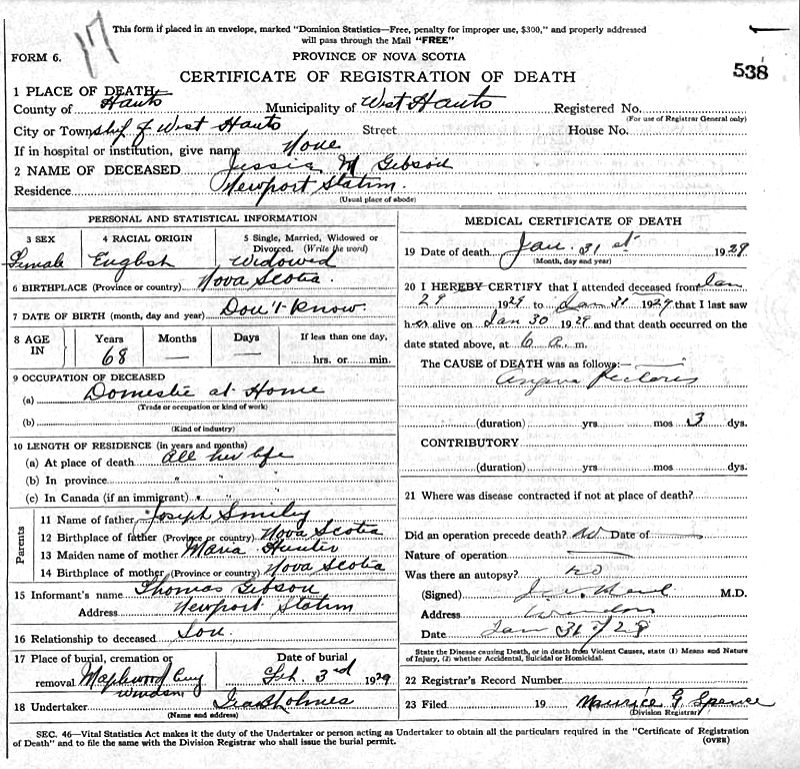 This form if placed in an envelope, marked "Dominion Statistics—Free, penalty for improper use, $300," and properly addressed
will pass through the Mail "FREE"
17
FORM 6.
PROVINCE OF NOVA SCOTIA
CERTIFICATE OF REGISTRATION OF DEATH
538
1 PLACE OF DEATH
County of Hants Municipality of West Hants Registered No.
(For use of Registrar General only)
City or Township of West Hants Street House No.
If in hospital or institution, give name None
2 NAME OF DECEASED Jessie M Gibson
Residence Newport Station.
(Usual place of abode)
PERSONAL AND STATISTICAL INFORMATION
3 SEX 4 RACIAL ORIGIN 5 Single, Married, Widowed or
Divorced. (Write the word)
Female English Widowed
6 BIRTHPLACE (Province or country) Nova Scotia.
7 DATE OF BIRTH (month, day and year) Don't Know.
8 AGE IN Years Months Days If less than one day,
68 — — hrs. or min.
9 OCCUPATION OF DECEASED
(a) Domestic at Home
(Trade or occupation or kind of work)
(b)
(Kind of industry)
10 LENGTH OF RESIDENCE (in years and months)
(a) At place of death All her life
(b) In province " " "
(c) In Canada (if an immigrant) " " "
Parents
11 Name of father Joseph Smiley
12 Birthplace of father (Province or country) Nova Scotia
13 Maiden name of mother Maria Hunter
14 Birthplace of mother (Province or country) Nova Scotia
15 Informant's name Thomas Gibson
Address Newport Station
16 Relationship to deceased Son.
17 Place of burial, cremation or Date of burial
removal Maplewood Cemy Feb. 3rd 1929
Windsor
18 Undertaker Holmes
(Name and address)
MEDICAL CERTIFICATE OF DEATH
19 Date of death Jan. 31st 1929
(Month, day and year)
20 I HEREBY CERTIFY that I attended deceased from Jan
29 1929 to Jan 31 1929 that I last saw
her alive on Jan 30 1929 and that death occurred on
date stated above, at 6 a. m.
The CAUSE OF DEATH was as follows:—
Angina Pectoris
(duration) yrs mos 3 dys.
CONTRIBUTORY
(duration) yrs. mos dys.
21 Where was disease contracted if not at place of death?
Did an operation precede death? no Date of —
Nature of operation —
Was there an autopsy? no
(Signed) M.D.
Address Windsor
Date Jan 31/29
State the Disease causing Death, or in death from Violent Causes, state (1) Means and Nature
of Injury, (2) whether Accidental, Suicidal or Homicidal.
22 Registrar's Record Number
23 Filed 19 Maurice G. Spence
(Division Registrar)
SEC. 46—Vital Statistics Act makes it the duty of the Undertaker or person acting as Undertaker to obtain all the particulars required in the "Certificate of Registration
of Death" and to file the same with the Division Registrar who shall issue the burial permit. (OVER)